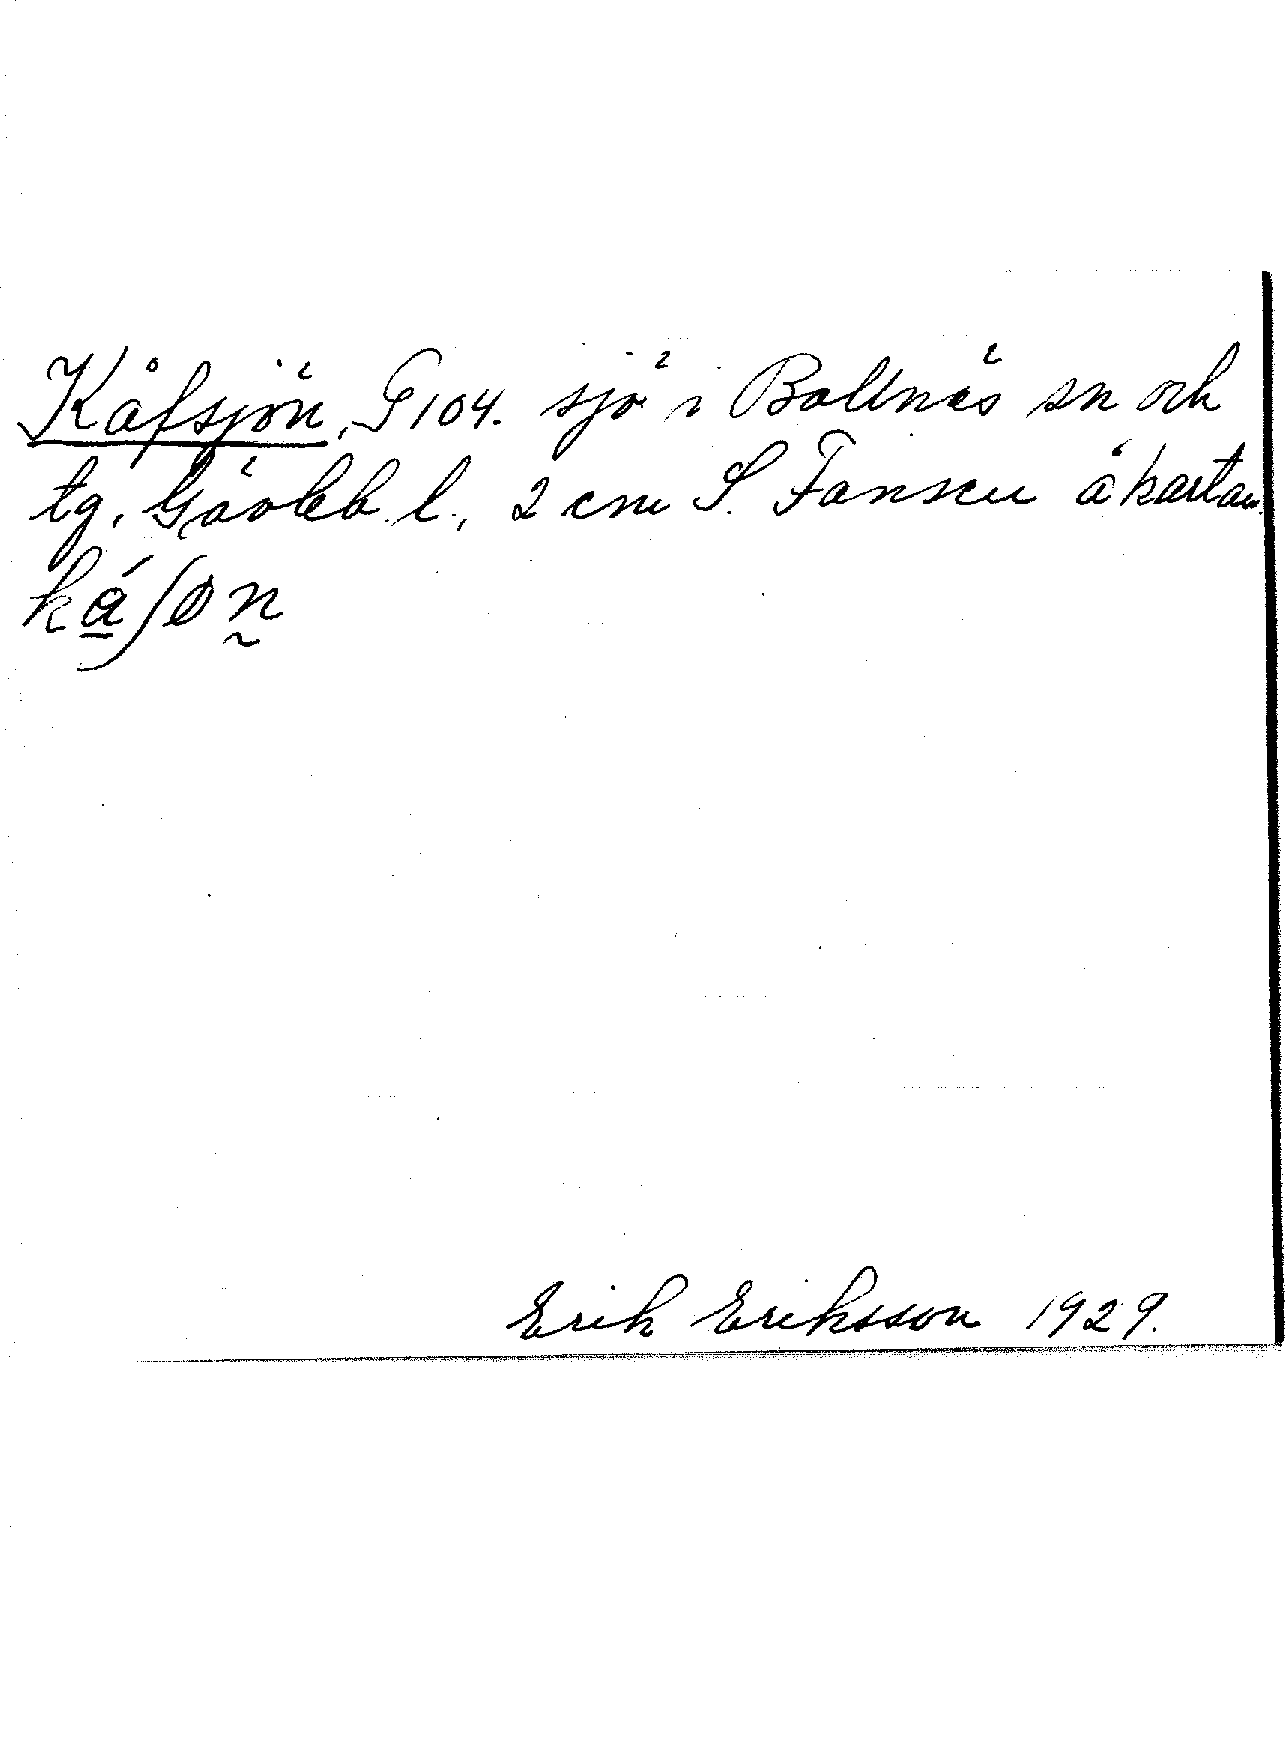 Kåfsjön, G 104. sjö i Bollnäs sn och
tg, Gävleb. l., 2 cm S. Fansen å kartan.
káſøn
Erik Eriksson 1929.